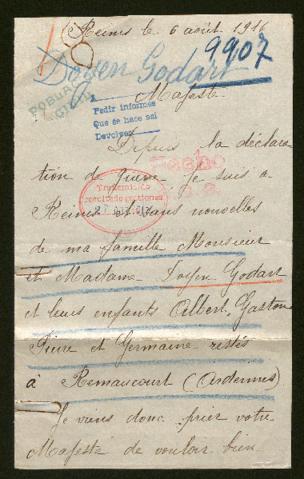 Reims le 6 août 1916
9907
Doyen Godart
Majesté
Pedir informes
Que se hace así
Devolver
Depuis la déclara
tion de guerre je suis à
Reims et sans nouvelles
de ma famille Monsieur
et Madame Doyen Godart
et leurs enfants Albert, Gaston
Pierre et Germaine restés
à Remaucourt (Ardennes)
Je viens donc prier votre
Majesté de vouloir bien